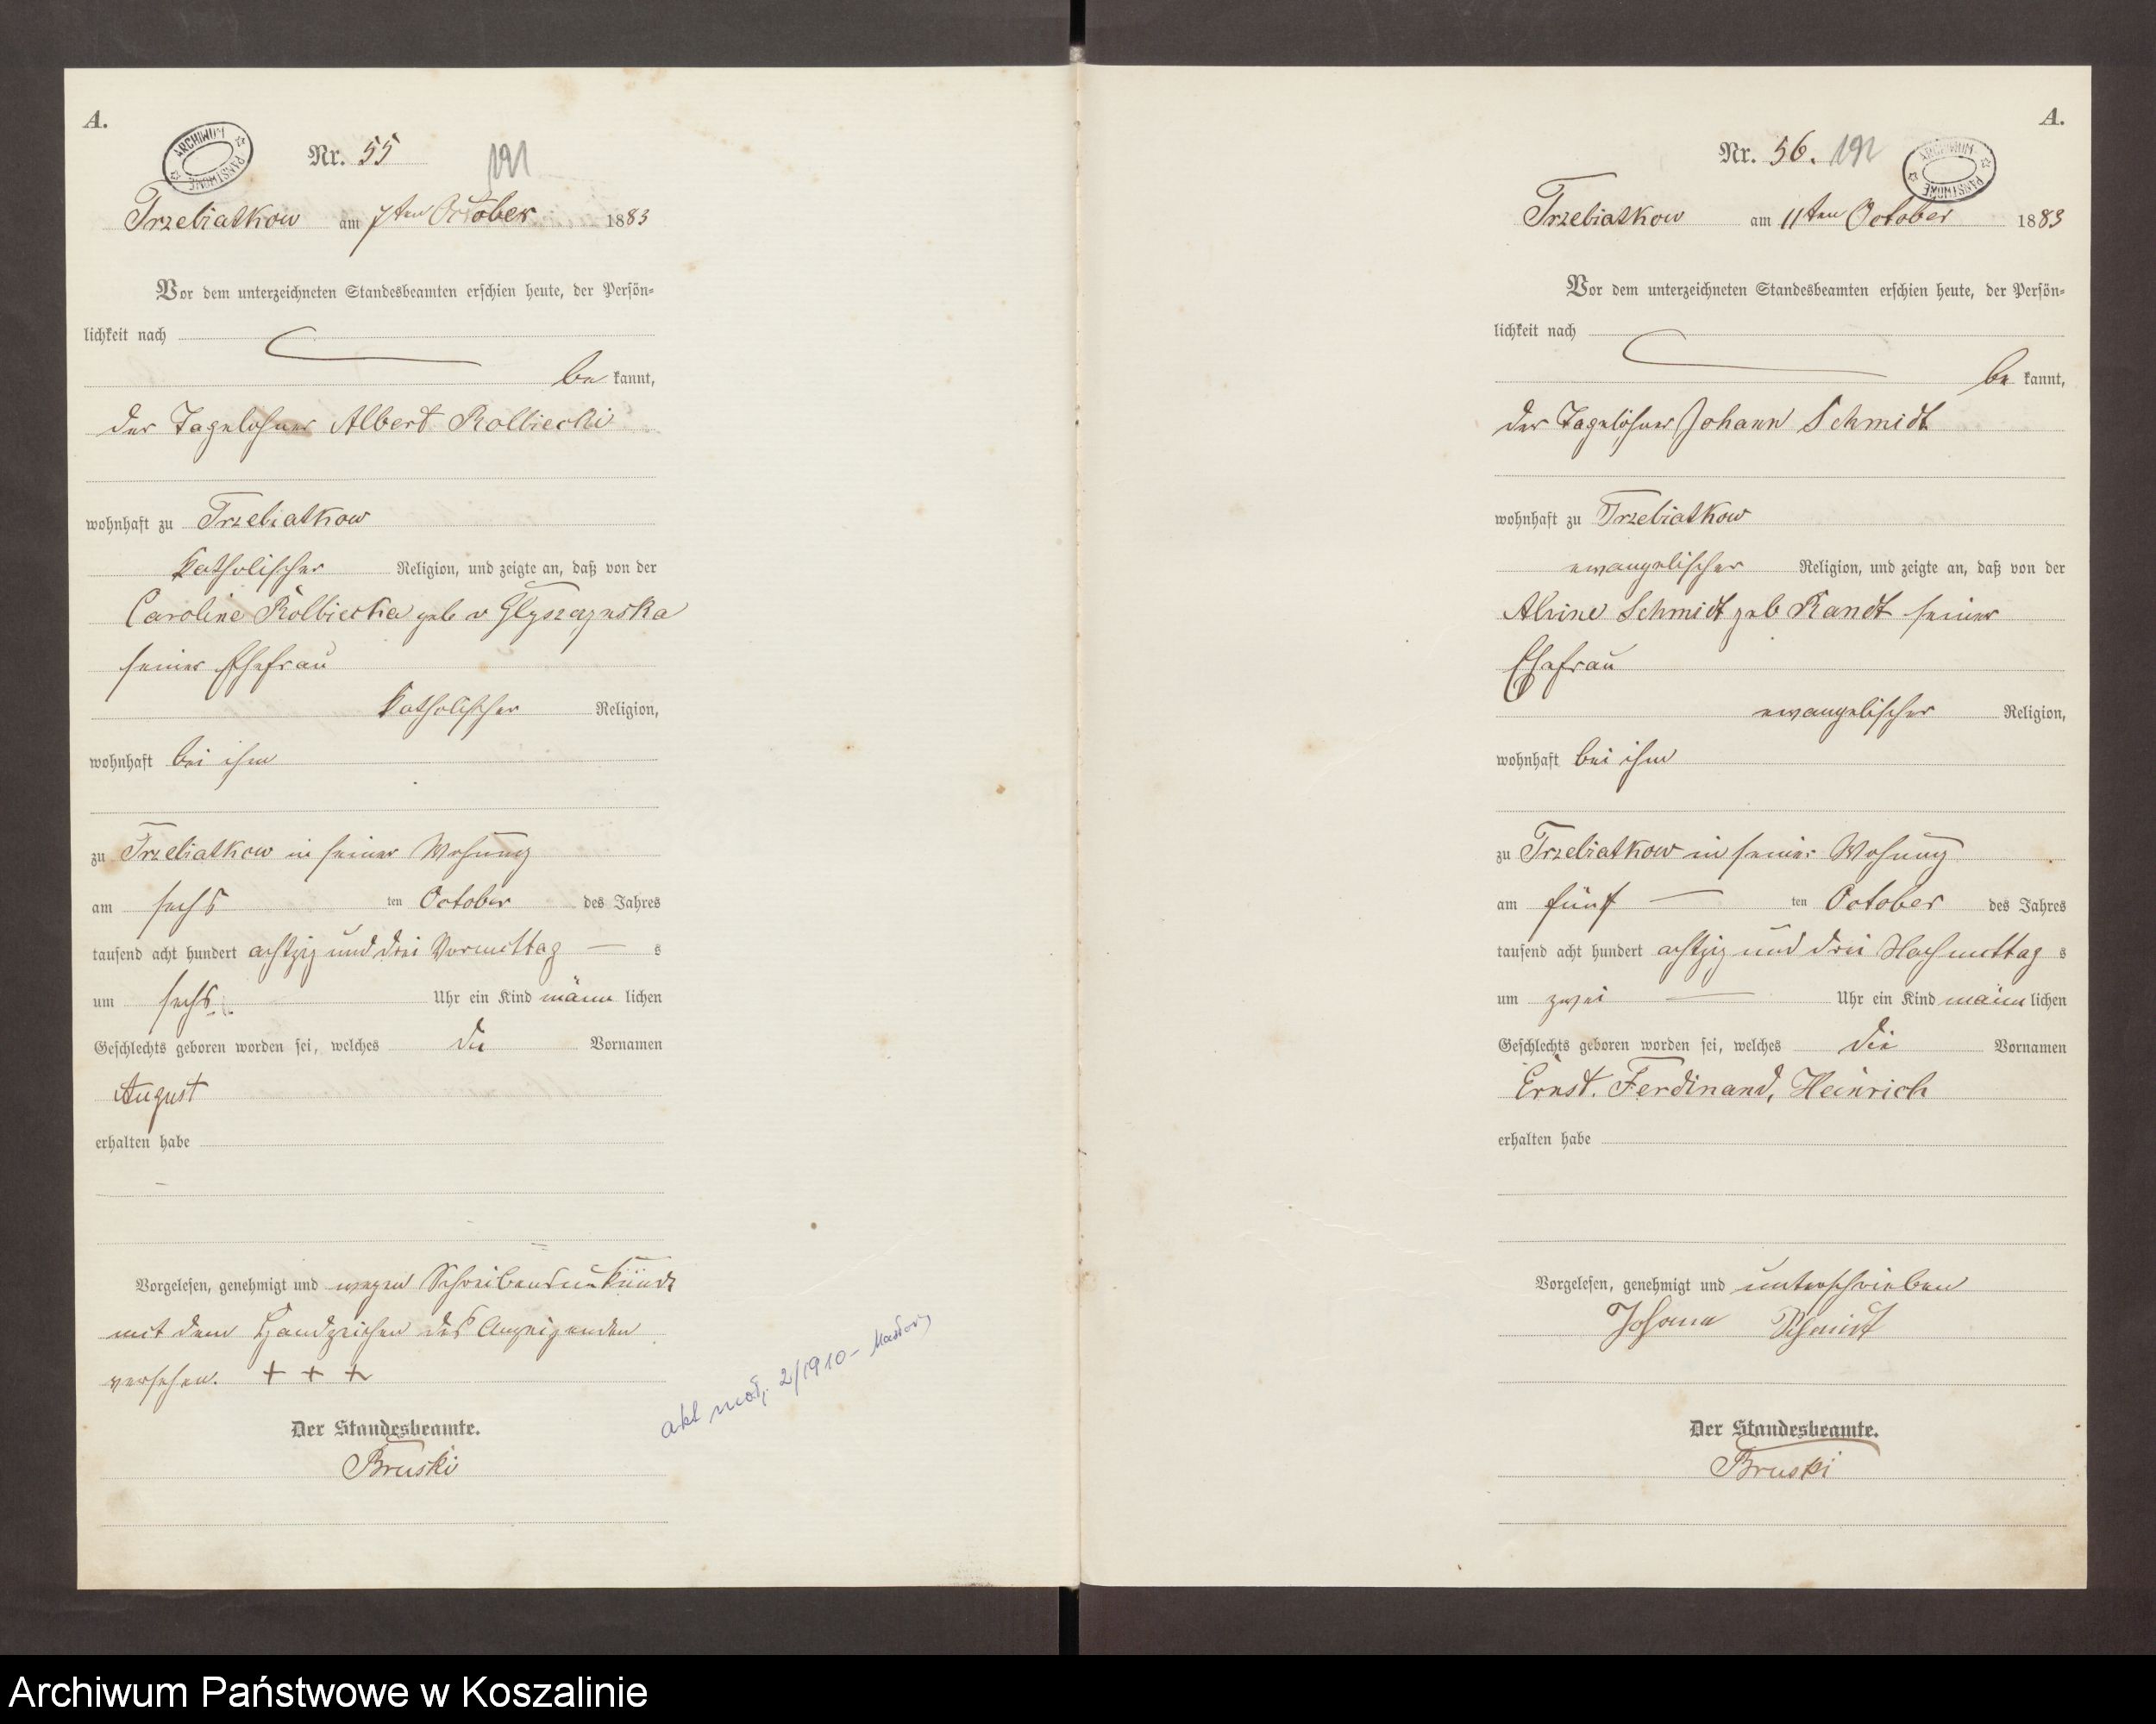 A.
ARCHIWUM PAŃSTWOWE
Nr. 55
191
Trzebiatkow am 7ten October 1883
Vor dem unterzeichneten Standesbeamten erschien heute, der Persön-
lichkeit nach
be kannt,
der Tagelöhner Albert Rolbiecki
wohnhaft zu Trzebiatkow
katholischer Religion, und zeigte an, daß von der
Caroline Rolbiecka geb v
seiner Ehefrau
katholischer Religion,
wohnhaft bei ihm
zu Trzebiatkow in seiner Wohnung
am sechs ten October des Jahres
tausend acht hundert achtzig und drei Vormittag s
um sechs Uhr ein Kind männ lichen
Geschlechts geboren worden sei, welches die Vornamen
August
erhalten habe
Vorgelesen, genehmigt und wegen
mit dem Handzeichen des Anzeigenden
versehen. + + +
Der Standesbeamte.
Bruski
2/1910 -
A.
Nr. 56. 192
ARCHIWUM PAŃSTWOWE
Trzebiatkow am 11ten October 1883
Vor dem unterzeichneten Standesbeamten erschien heute, der Persön-
lichkeit nach
be kannt,
der Tagelöhner Johann Schmidt
wohnhaft zu Trzebiatkow
ewangelischer Religion, und zeigte an, daß von der
Alvine Schmidt geb Randt seiner
Ehefrau
ewangelischer Religion,
wohnhaft bei ihm
zu Trzebiatkow in seiner Wohnung
am fünf ten October des Jahres
tausend acht hundert achtzig und drei Nachmittag s
um zwei Uhr ein Kind männ lichen
Geschlechts geboren worden sei, welches die Vornamen
Ernst. Ferdinand, Heinrich
erhalten habe
Vorgelesen, genehmigt und unterschrieben
Johann Schmidt
Der Standesbeamte.
Bruski
Archiwum Państwowe w Koszalinie